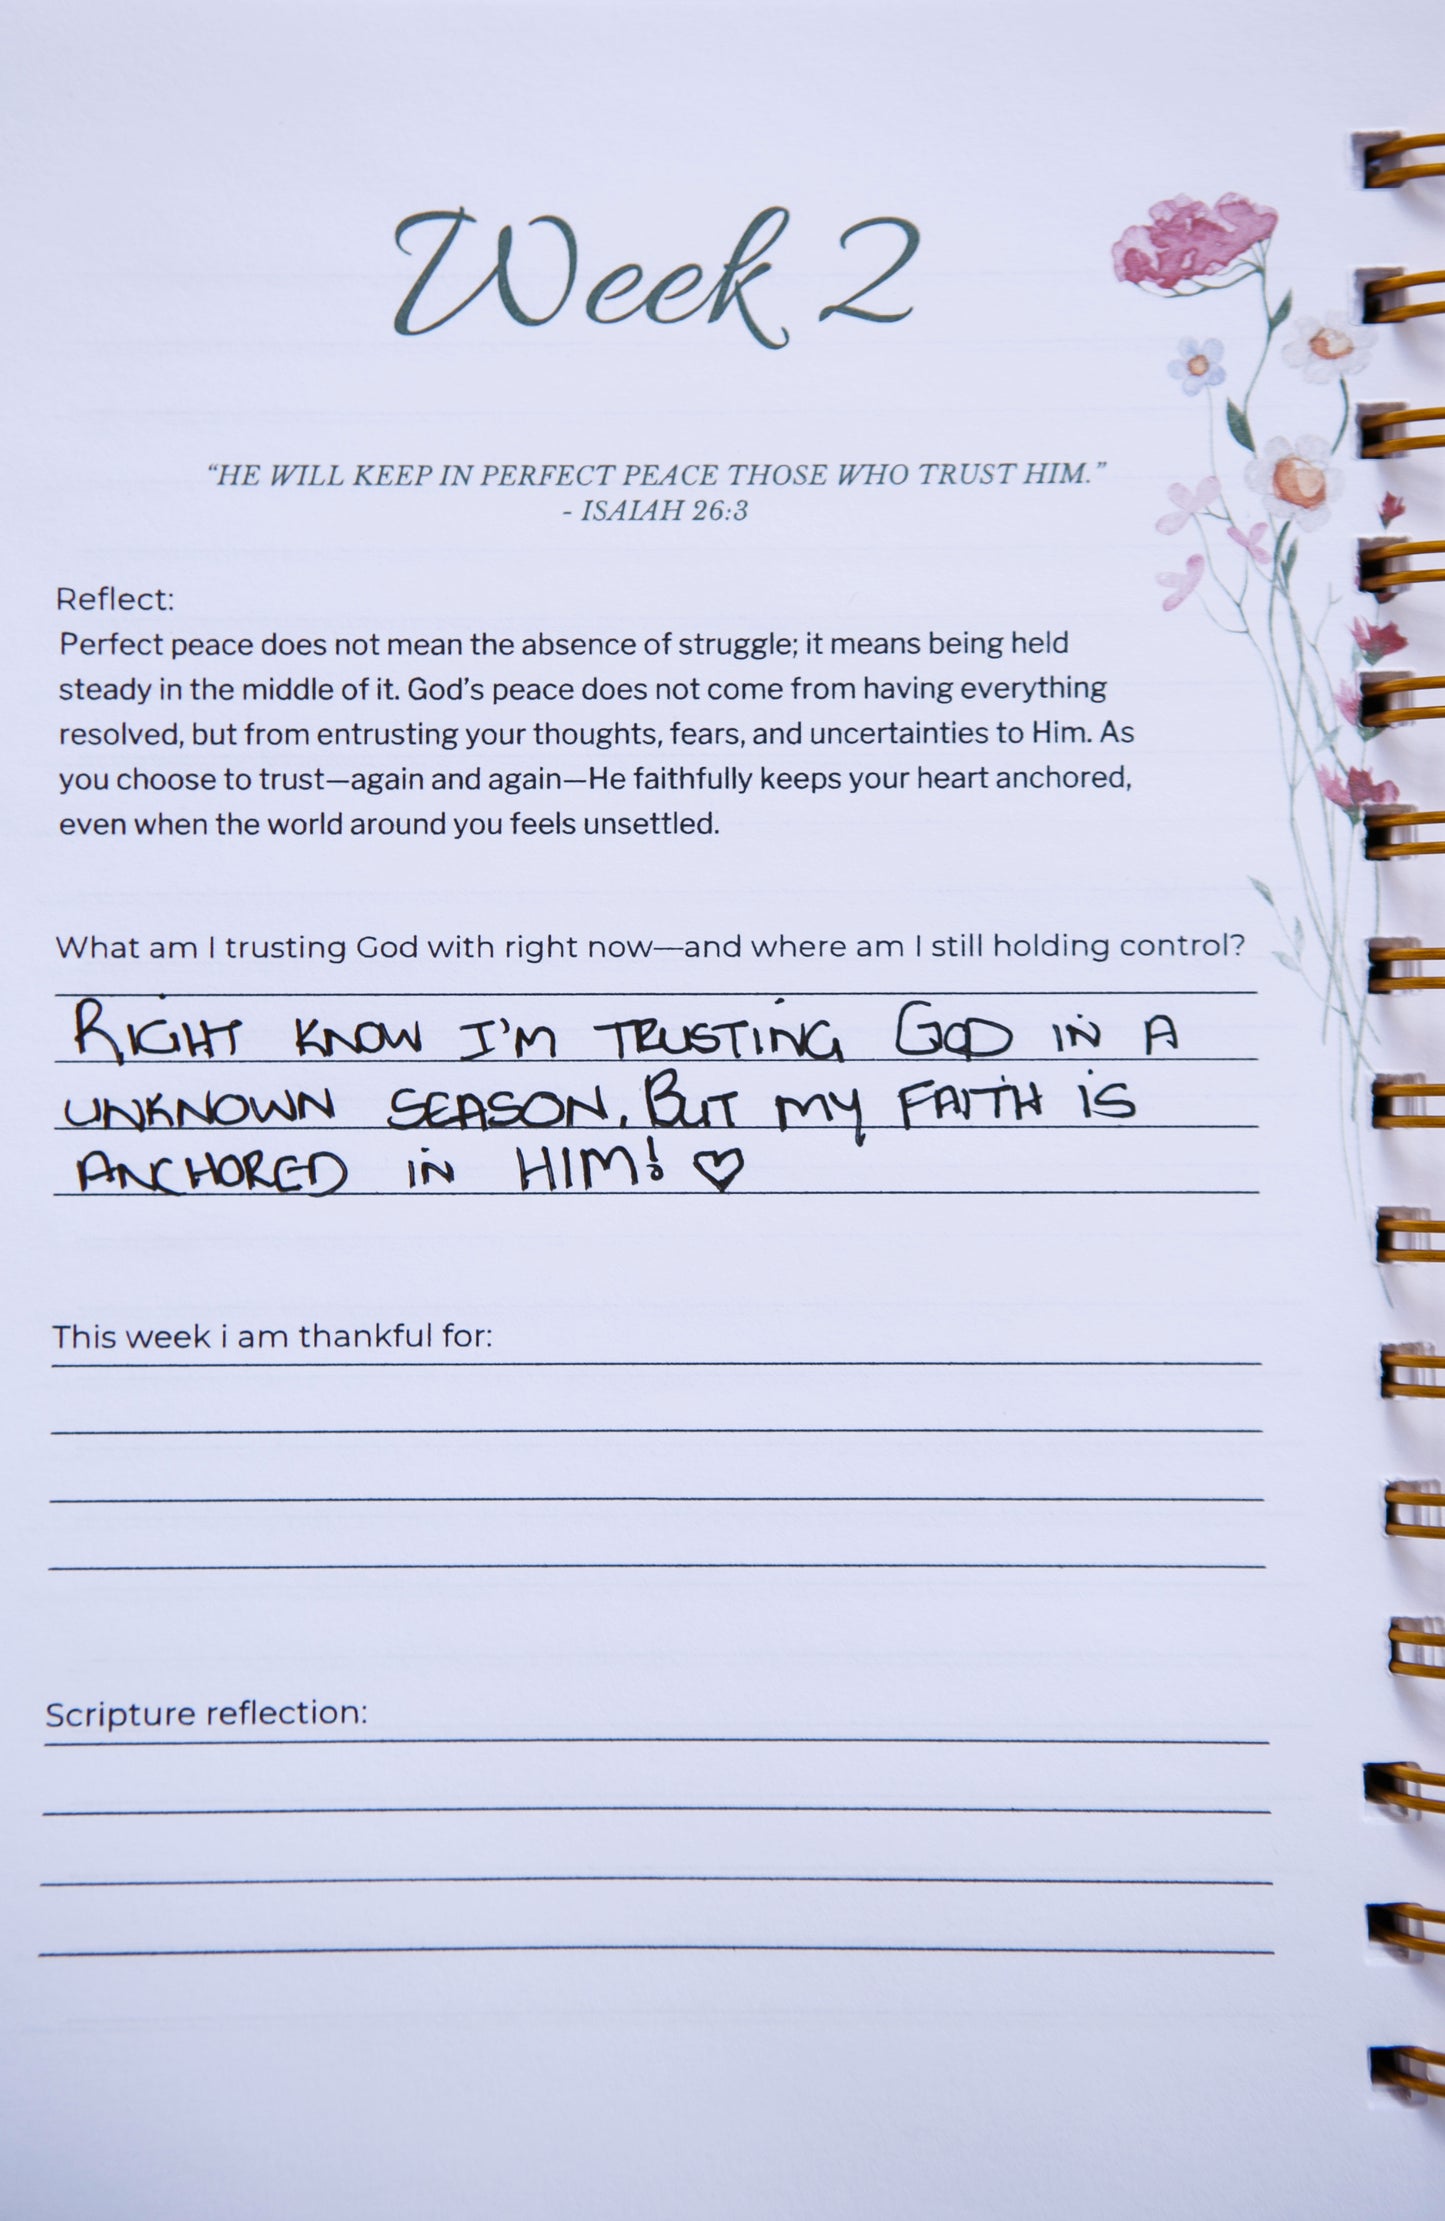 Week 2
“HE WILL KEEP IN PERFECT PEACE THOSE WHO TRUST HIM.”
- ISAIAH 26:3
Reflect:
Perfect peace does not mean the absence of struggle; it means being held
steady in the middle of it. God’s peace does not come from having everything
resolved, but from entrusting your thoughts, fears, and uncertainties to Him. As
you choose to trust—again and again—He faithfully keeps your heart anchored,
even when the world around you feels unsettled.
What am I trusting God with right now—and where am I still holding control?
RIGHT KNOW I'M TRUSTING GOD IN A
UNKNOWN SEASON. BUT MY FAITH IS
ANCHORED IN HIM! ♡
This week i am thankful for:
Scripture reflection: